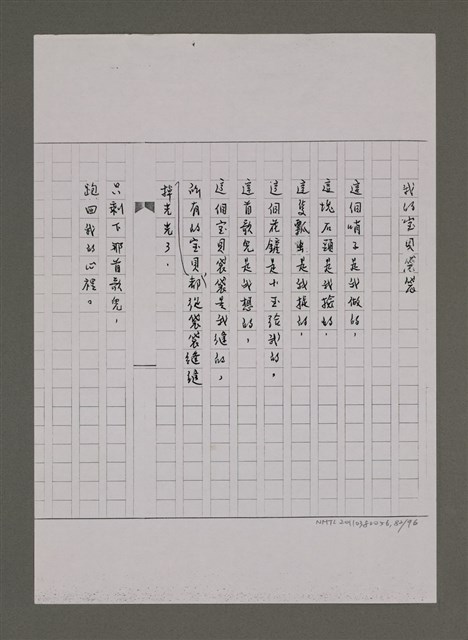 我的宝贝袋袋
這個哨子是我做的，
這塊石頭是我撿的，
這隻瓢虫是我捉的，
這個花籃是小玉給我的，
這首歌兒是我想的，
這個宝贝袋袋是我縫的，
所有的宝贝都從袋袋縫縫
掉光光了、
只剩下那首歌兒，
跑回我的心裡。